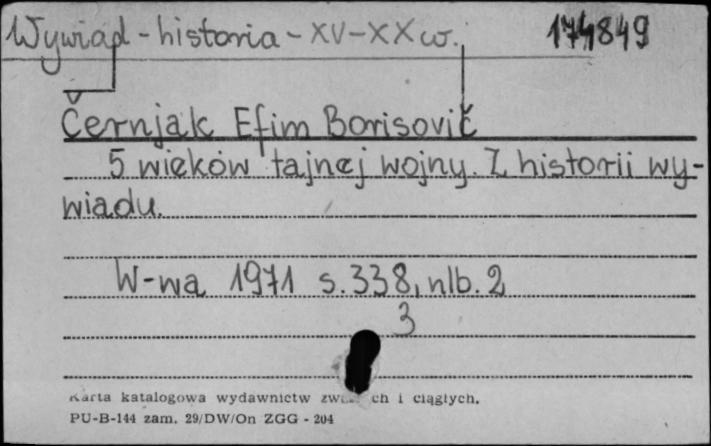 Wywiad - historia - XV-XX w. 174849
Černjak Efim Borisovič
5 wieków tajnej wojny. Z historii wy-
wiadu.
W-wa 1971 s. 338, nlb. 2
3
Karta katalogowa wydawnictw i ciągłych.
PU-B-144 zam. 29/DW/On ZGG - 204